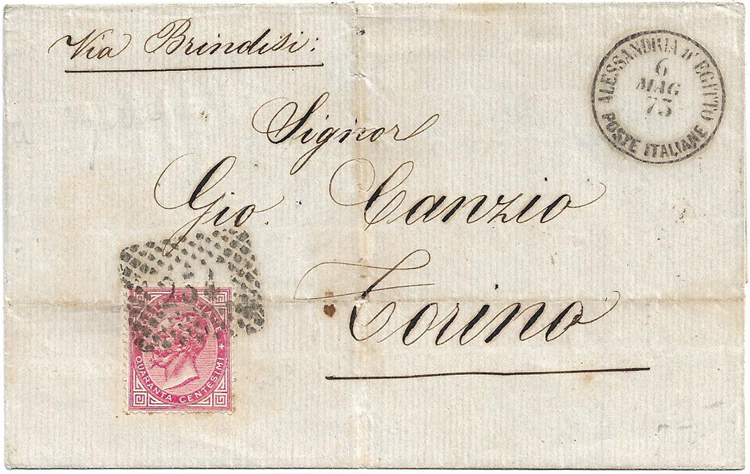 Via Brindisi:
ALESSANDRIA D'EGITTO
6
MAG
73
POSTE ITALIANE
Signor
Gio. Canzio
Torino
234
QUARANTA CENTESIMI